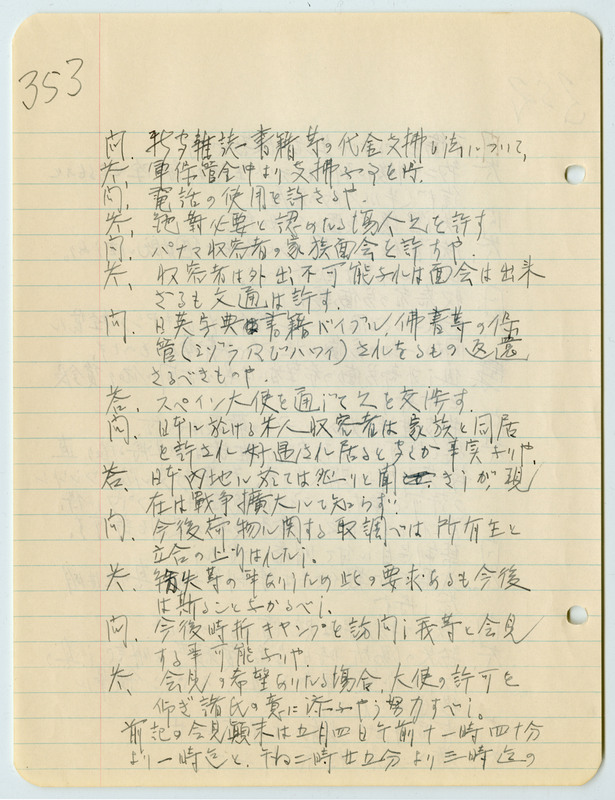 353
問、新聞雑誌書籍等の代金支拂方法について、
答、軍保管金中より支拂ふ事を得、
問、電話の使用を許さるや、
答、絶対必要と認めたる場合之を許す
問、パナマ収容者の家族面会を許すや、
答、収容者は外出不可能なれば面会は出来
ざるも文通は許す、
問、日英字典 書籍バイブル、佛書等の保
管(ミゾラ及びハワイ)されをるもの返還
さるべきものや、
答、スペイン大使を通じて之を交渉す、
問、日本に於ける米人収容者は家族と同居
を許され好遇され居ると聞くが事実なりや、
答、日本内地に於ては然りと聞きしが、現
在は戰争擴大にて知らず、
問、今後荷物に関する取調べは所有主と
立合の上 行はれたし。
答、紛失等の事ありしため此の要求あるも今後
は斯ること なかるべし。
問、今後時折キャンプを訪問し我等と会見
する事可能なりや、
答、会見の希望ありたる場合、大使の許可を
仰ぎ諸氏の意に添ふやう努力すべし。
前記の会見顛末は五月四日午前十一時四十分
より一時迄と、 二時廿五分より三時迄の